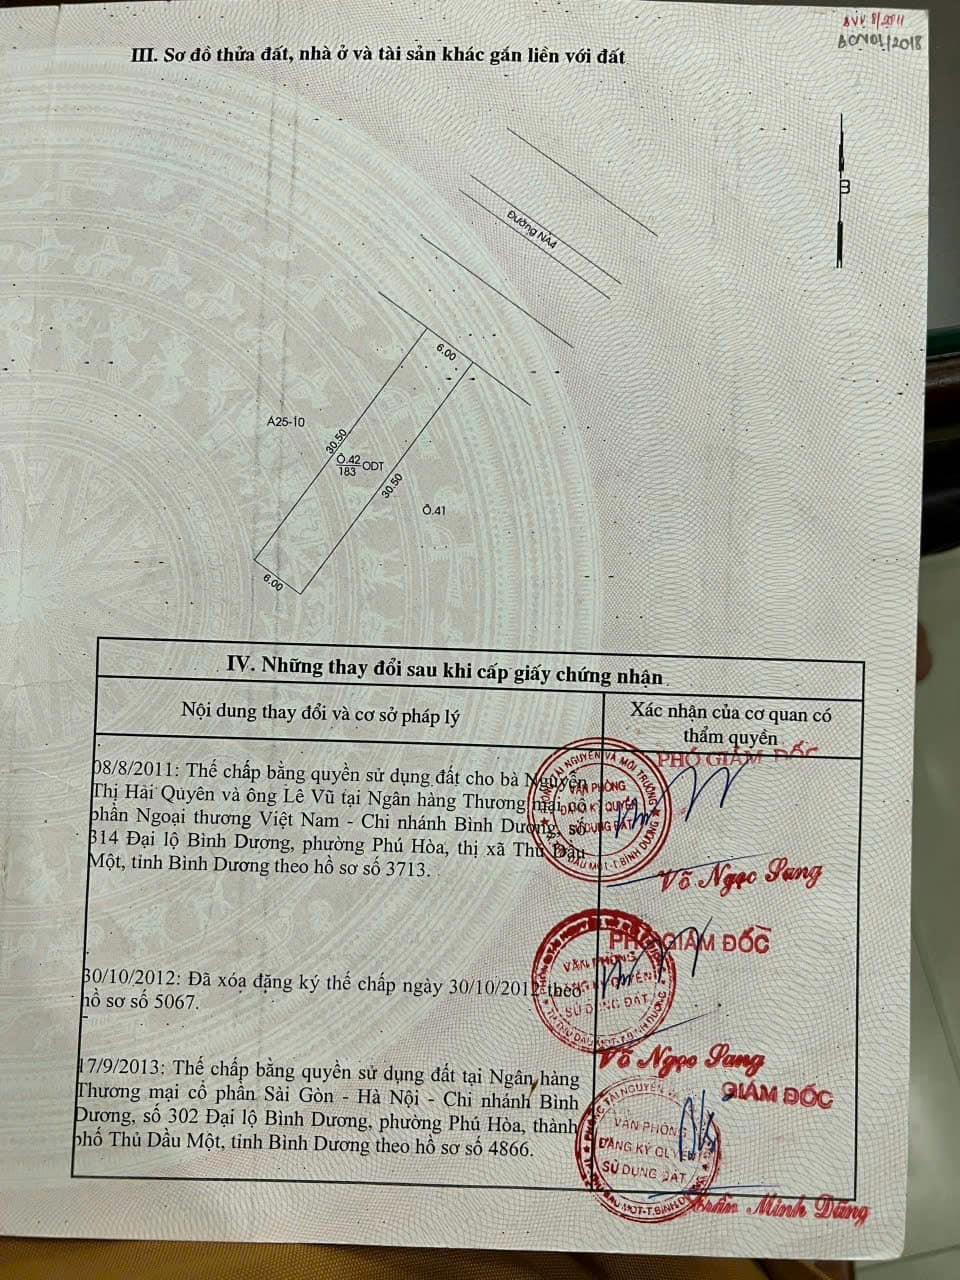 8/2011
III. Sơ đồ thửa đất, nhà ở và tài sản khác gắn liền với đất
B
Đường NA4
6.00
A25-10
30.50
Ô.42
183
ODT
30.50
Ô.41
6.00
IV. Những thay đổi sau khi cấp giấy chứng nhận
Nội dung thay đổi và cơ sở pháp lý
Xác nhận của cơ quan có
thẩm quyền
08/8/2011: Thế chấp bằng quyền sử dụng đất cho bà Nguyễn
Thị Hải Quyên và ông Lê Vũ tại Ngân hàng Thương mại cổ
phần Ngoại thương Việt Nam - Chi nhánh Bình Dương, số
314 Đại lộ Bình Dương, phường Phú Hòa, thị xã Thủ Dầu
Một, tỉnh Bình Dương theo hồ sơ số 3713.
PHÓ GIÁM ĐỐC
VĂN PHÒNG
ĐĂNG KÝ QUYỀN
SỬ DỤNG ĐẤT
Võ Ngọc Sang
30/10/2012: Đã xóa đăng ký thế chấp ngày 30/10/2012 theo
hồ sơ số 5067.
PHÓ GIÁM ĐỐC
VĂN PHÒNG
ĐĂNG KÝ QUYỀN
SỬ DỤNG ĐẤT
Võ Ngọc Sang
17/9/2013: Thế chấp bằng quyền sử dụng đất tại Ngân hàng
Thương mại cổ phần Sài Gòn - Hà Nội - Chi nhánh Bình
Dương, số 302 Đại lộ Bình Dương, phường Phú Hòa, thành
phố Thủ Dầu Một, tỉnh Bình Dương theo hồ sơ số 4866.
GIÁM ĐỐC
VĂN PHÒNG
ĐĂNG KÝ QUYỀN
SỬ DỤNG ĐẤT
Trần Minh Dũng